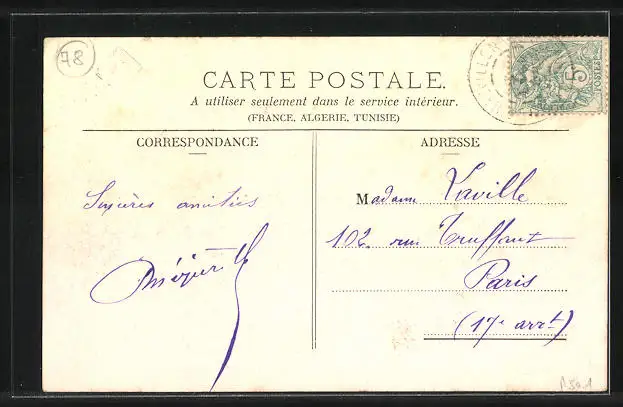 78
CARTE POSTALE.
A utiliser seulement dans le service intérieur.
(FRANCE, ALGERIE, TUNISIE)
5
POSTES
CORRESPONDANCE
ADRESSE
Sincères amitiés
Madame Laville
102 rue Truffaut
Paris
(17e arrt)